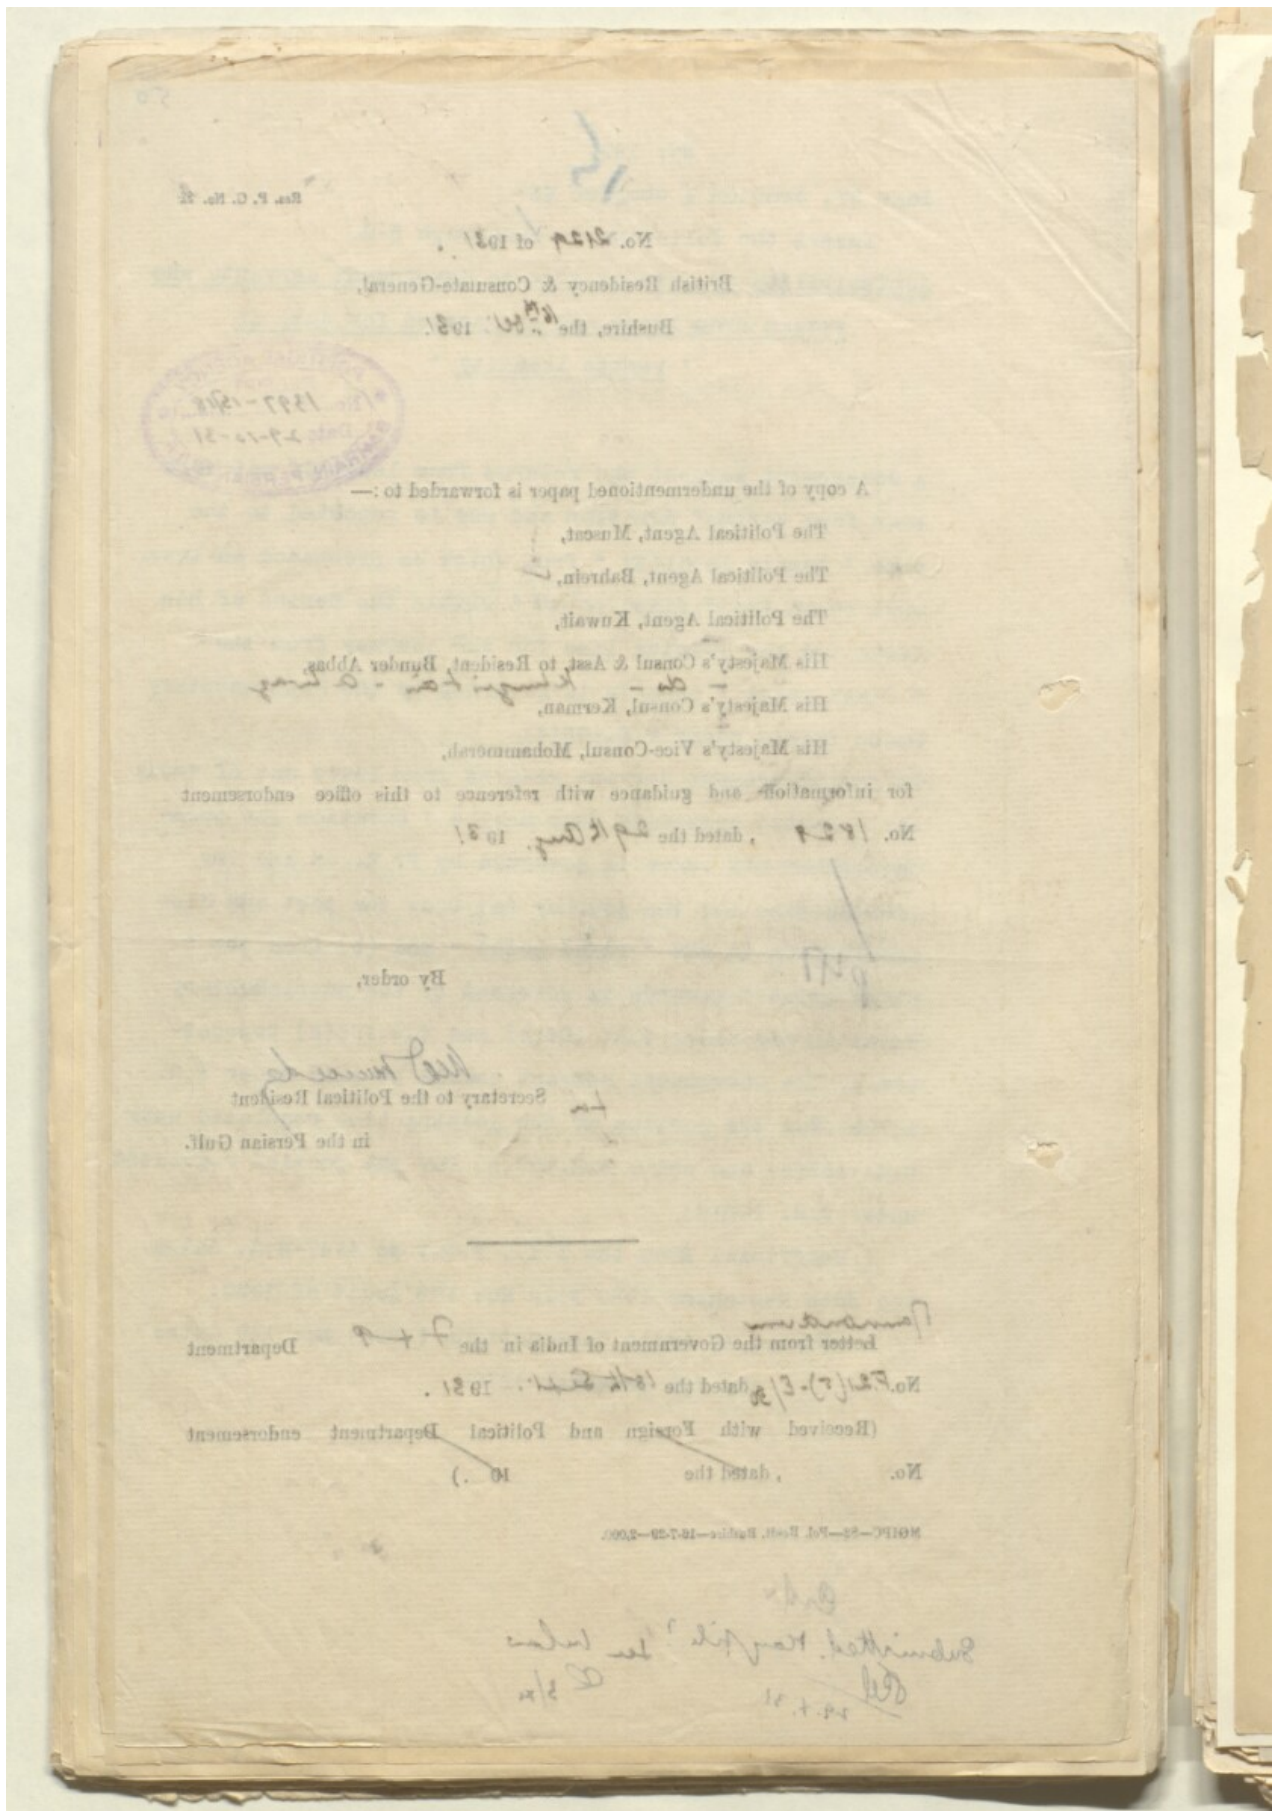 Res. P. G. No.
No. 2129 of 1931.
British Residency & Consulate-General,
Bushire, the 16th Oct. 1931.
1397-15/18
Date 29-10-31
A copy of the undermentioned paper is forwarded to:—
The Political Agent, Muscat,
The Political Agent, Bahrein,
The Political Agent, Kuwait,
His Majesty's Consul & Asst. to Resident, Bunder Abbas,
- do - Khuzistan - Ahwaz
His Majesty's Consul, Kerman,
His Majesty's Vice-Consul, Mohammerah,
for information and guidance with reference to this office endorsement
No. 1829, dated the 29th Aug. 1931
By order,
for Secretary to the Political Resident
in the Persian Gulf.
Memorandum
Letter from the Government of India in the F & P Department
No. F.21(5)-E/30 dated the 18th Sept. 1931.
(Received with Foreign and Political Department endorsement
No. , dated the 19 .)
MGIPC—S2—Pol. Resdt. Bushire—16-7-29—2,000.
Submitted. May file? see below
29.X.31